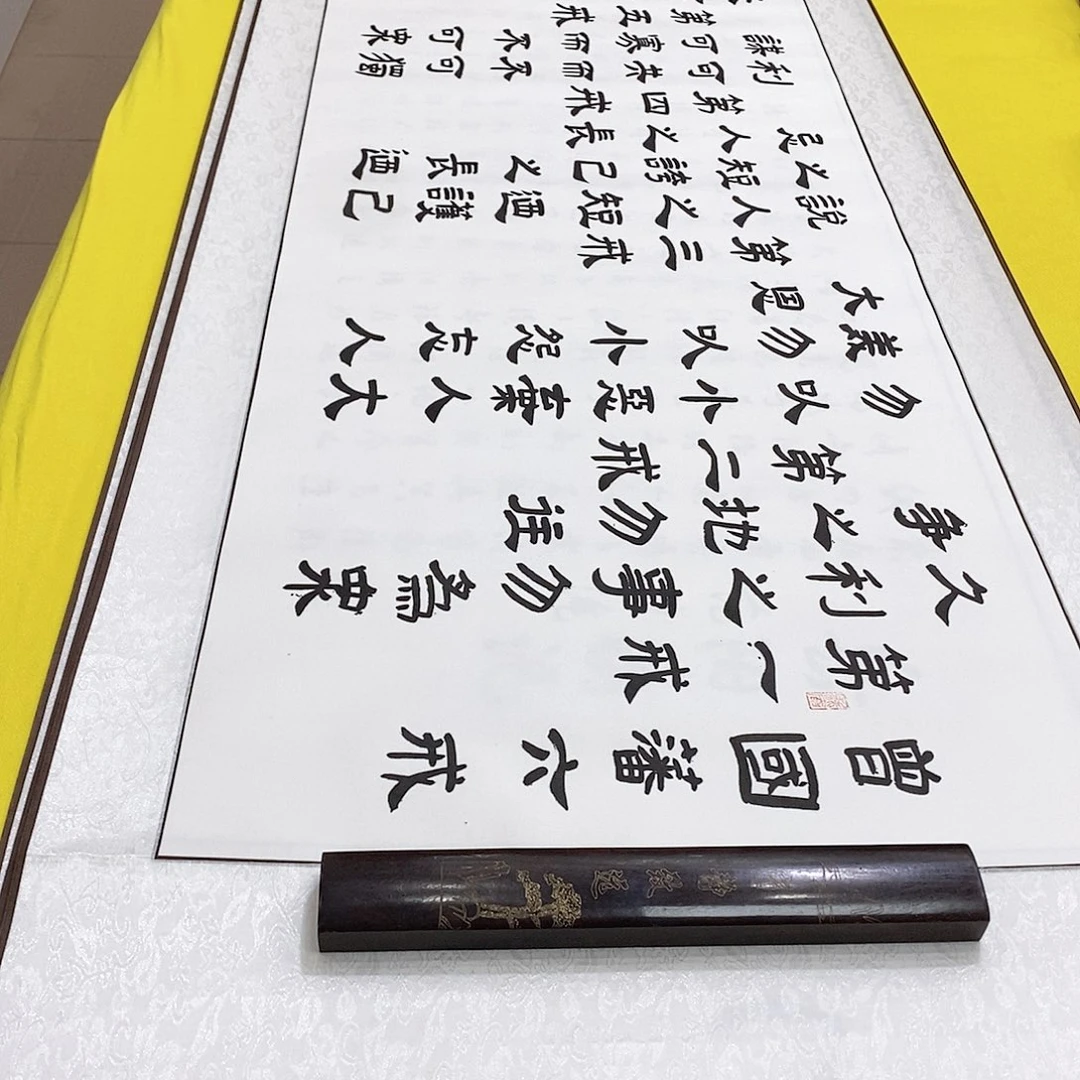 曾國藩六戒
第一戒
久利之事勿為眾
爭之地勿往
第二戒
勿以小惡棄人大
義勿以小怨忘人
大恩
第三戒
說人之短迺護己
之短誇己之長迺
忌人之長
第四戒
利可共而不可獨
謀可寡而不可眾
第五戒